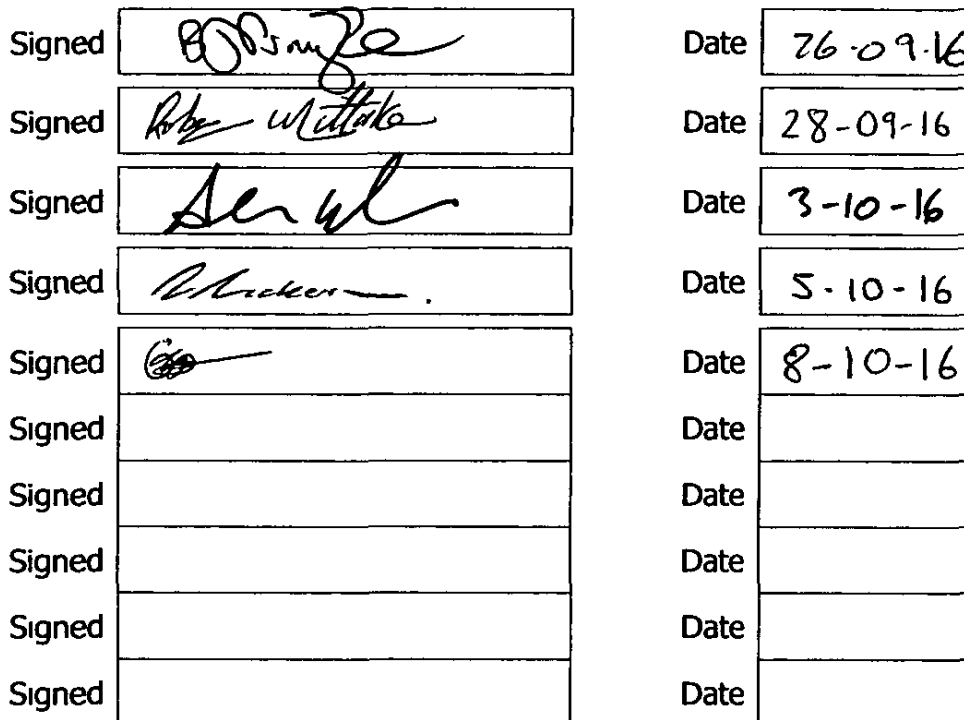 Signed Date 26-09-16
Signed Date 28-09-16
Signed Date 3-10-16
Signed Date 5-10-16
Signed Date 8-10-16
Signed Date
Signed Date
Signed Date
Signed Date
Signed Date